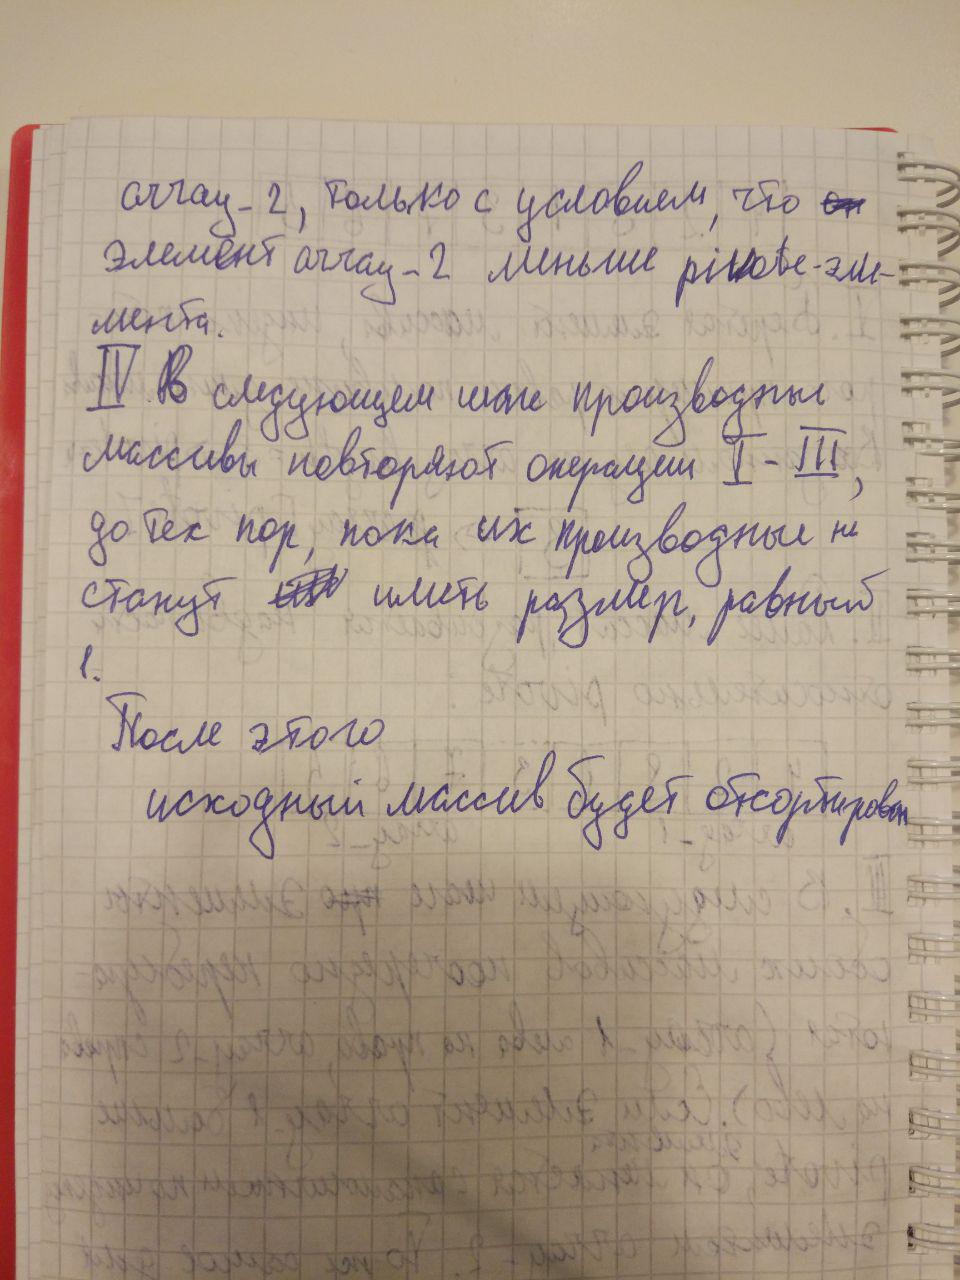 array-2, только с условием, что
элемент array-2 меньше pivote-эле-
мента.
IV В следующем шаге производные
массивы повторяют операции I - III,
до тех пор, пока их производные не
станут иметь размер, равный
1.
После этого
исходный массив будет отсортирован